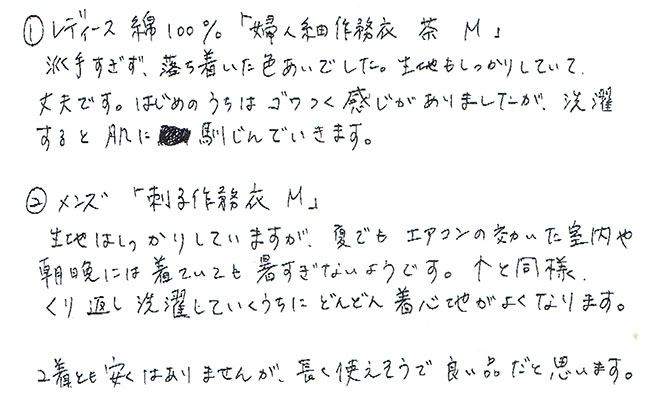 ① レディース 綿100%「婦人紬作務衣 茶 M」
派手すぎず、落ち着いた色あいでした。生地もしっかりしていて、
丈夫です。はじめのうちは ゴワつく感じがありましたが、洗濯
すると 肌に 馴じんでいきます。
② メンズ 「刺子作務衣 M」
生地はしっかりしていますが、夏でも エアコンの効いた室内や
朝晩には 着ていても 暑すぎないようです。↑と同様、
くり返し 洗濯していくうちに どんどん 着心地がよくなります。
2着とも 安くはありませんが、長く使えそうで 良い品だと思います。